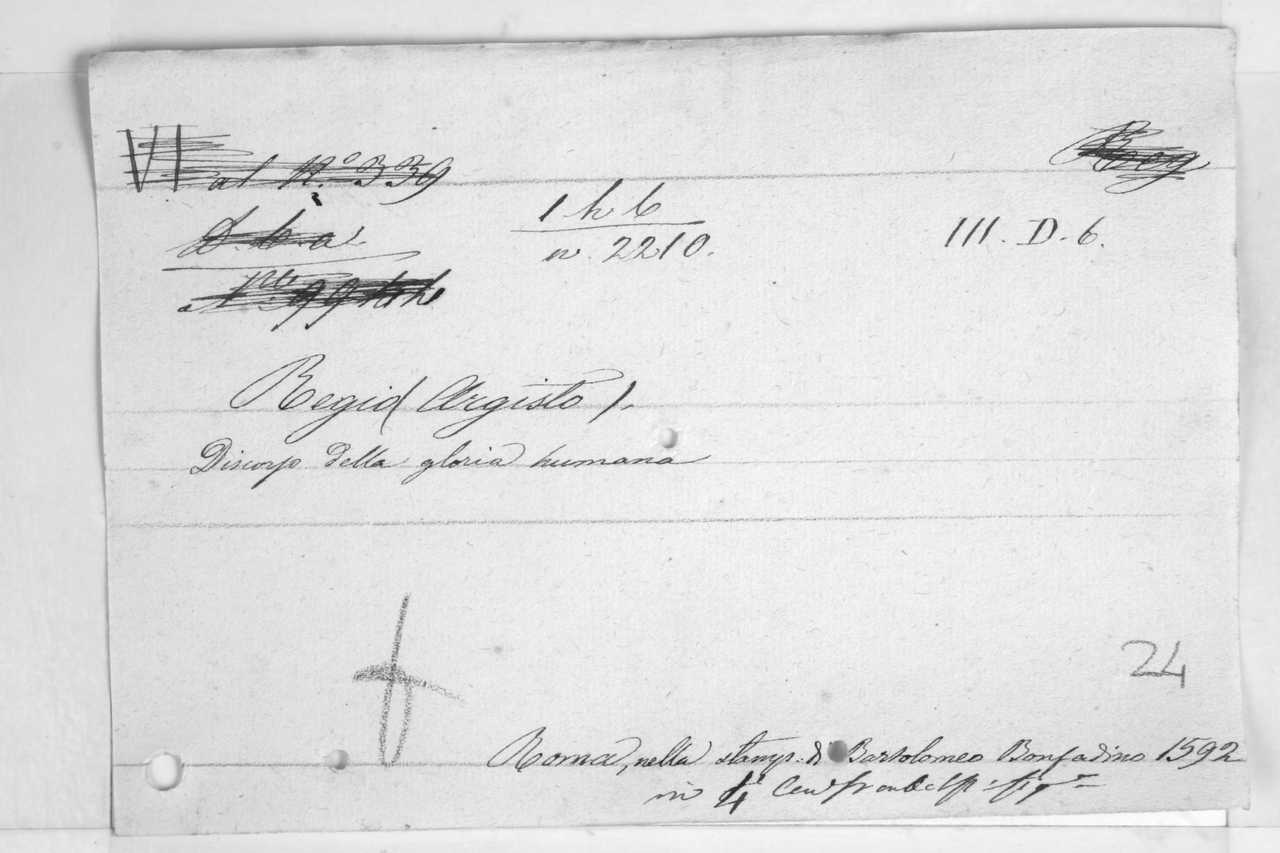 VI al N.° 339
1 h 6
n. 2210.
III. D. 6.
Regio (Argisto).
Discorso della gloria humana
24
Roma, nella stamp. di Bartolomeo Bonfadino 1592
in 4